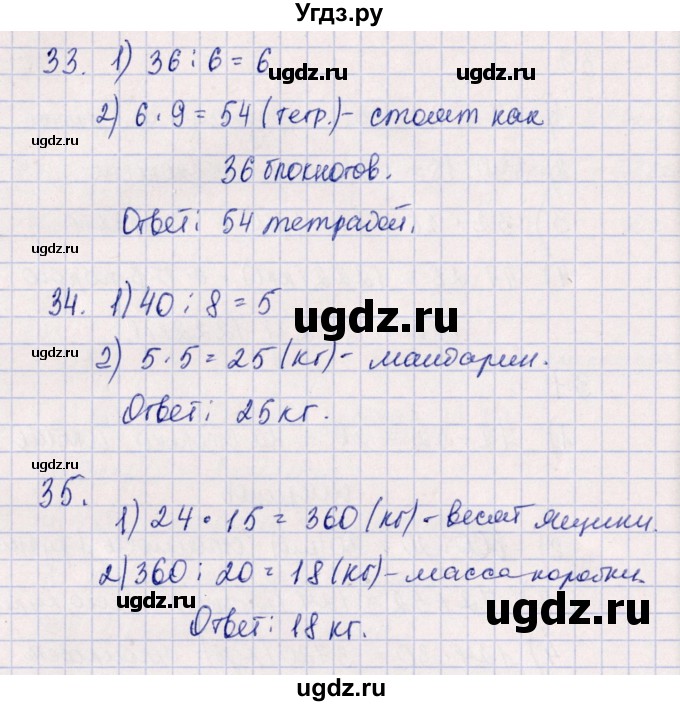 Угдз.ру
33. 1) 36 : 6 = 6
ugdz.ru ugdz.ru
2) 6 · 9 = 54 (тетр.) - стоят как
ugdz.ru
36 блокнотов.
Ответ: 54 тетрадей.
ugdz.ru
34. 1) 40 : 8 = 5
ugdz.ru
2) 5 · 5 = 25 (кг) - мандарин.
ugdz.ru
Ответ: 25 кг.
ugdz.ru
35.
1) 24 · 15 = 360 (кг) - весят ящики.
ugdz.ru
2) 360 : 20 = 18 (кг) - масса коробки.
ugdz.ru
Ответ: 18 кг.
ugdz.ru
ugdz.ru